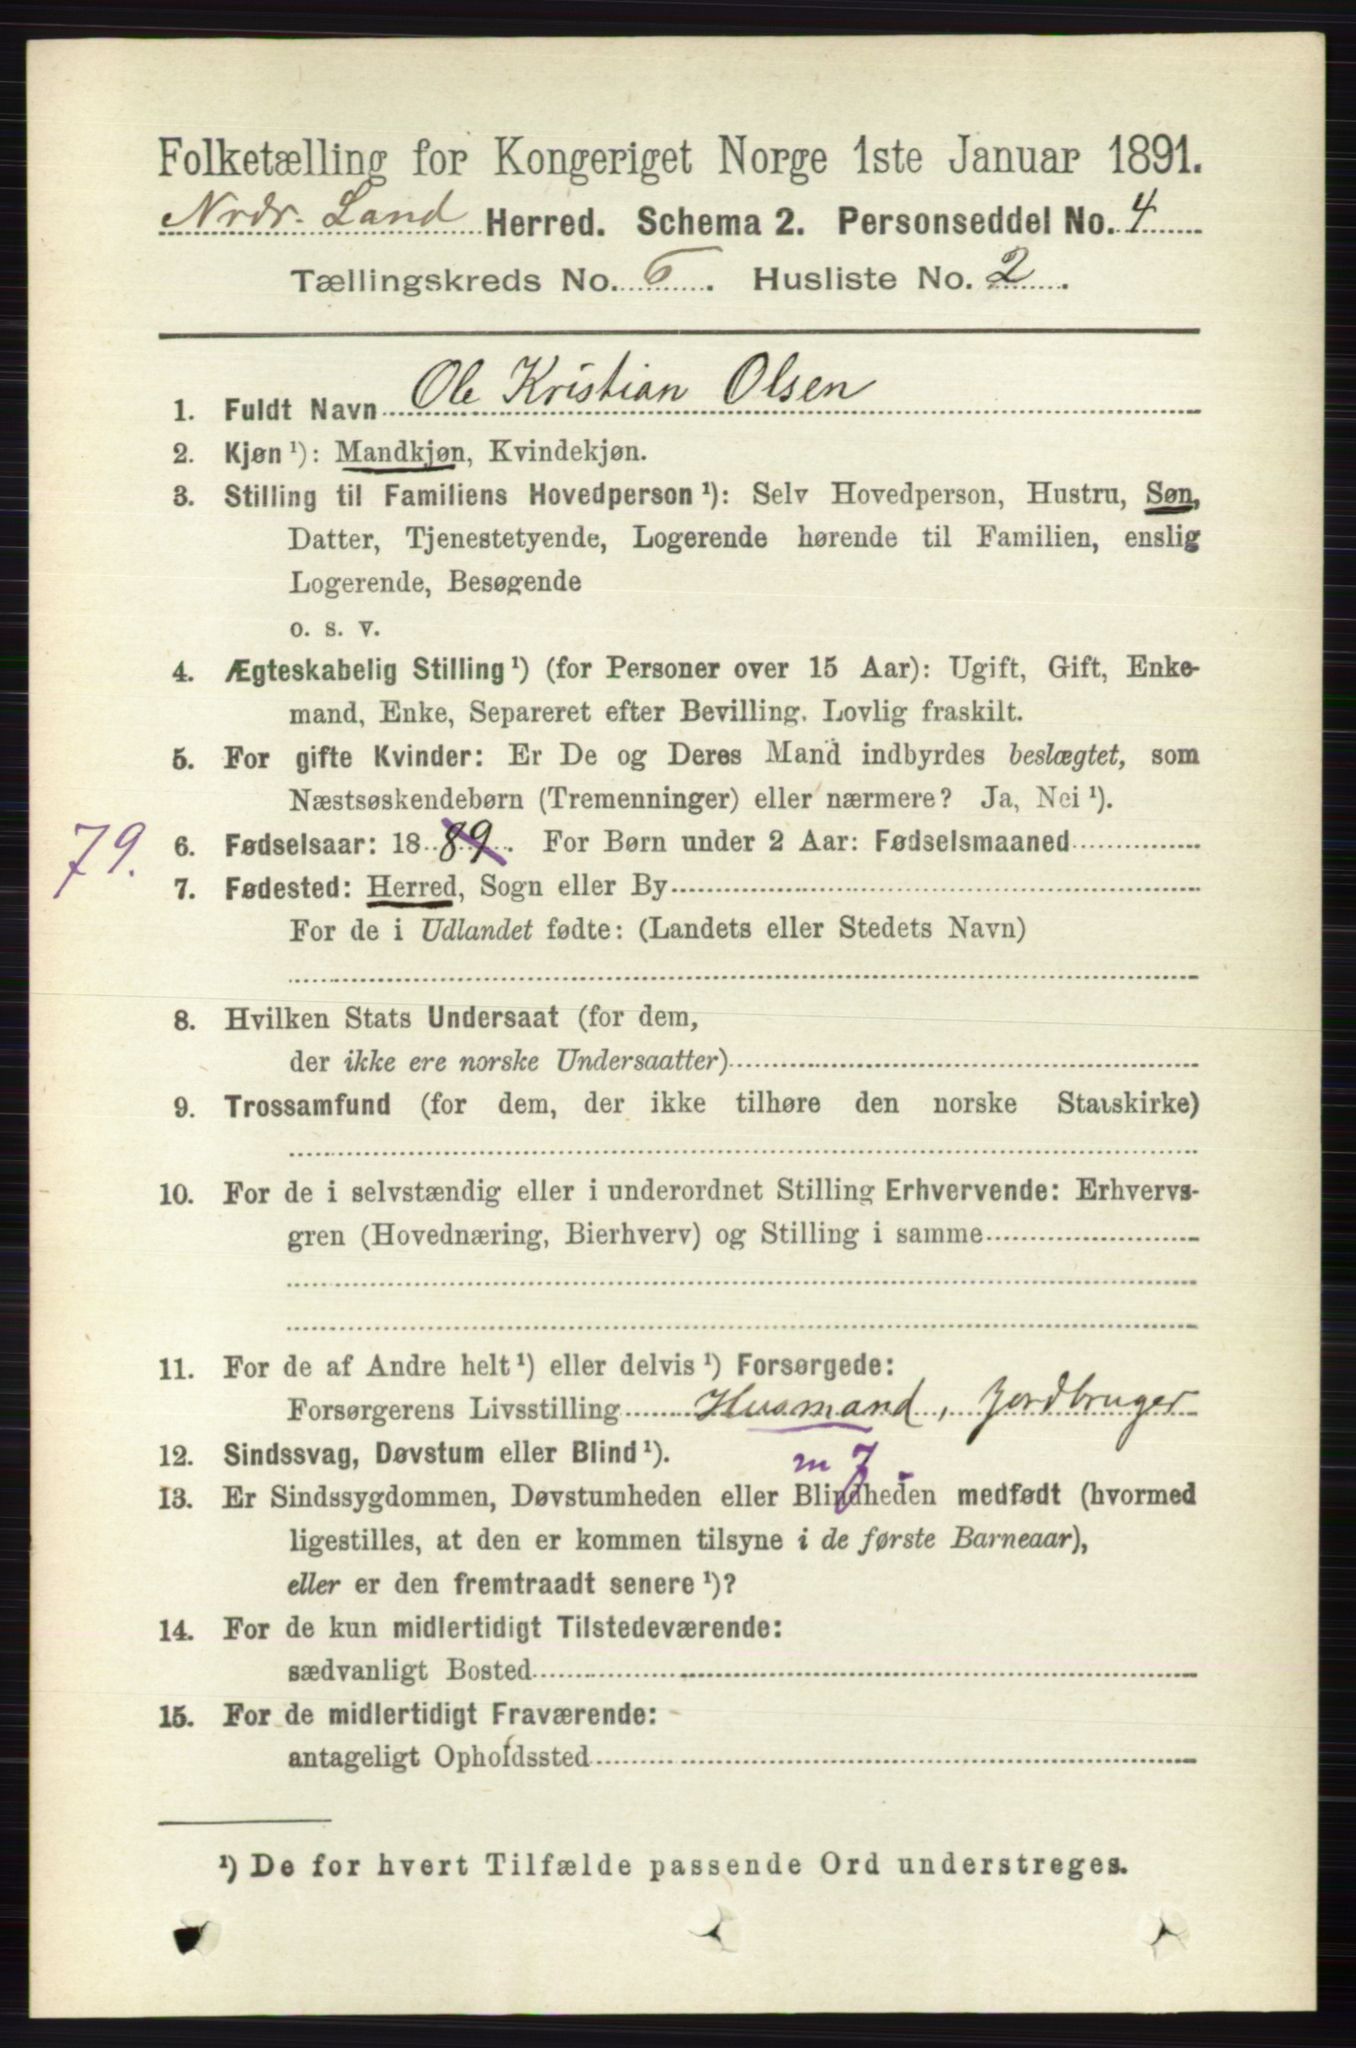 Folketælling for Kongeriget Norge 1ste Januar 1891.
Nrdr. Land Herred. Schema 2. Personseddel No. 4
Tællingskreds No. 6. Husliste No. 2.
1. Fuldt Navn Ole Kristian Olsen
2. Kjøn ¹): Mandkjøn, Kvindekjøn.
3. Stilling til Familiens Hovedperson ¹): Selv Hovedperson, Hustru, Søn,
Datter, Tjenestetyende, Logerende hørende til Familien, enslig
Logerende, Besøgende
o. s. v.
4. Ægteskabelig Stilling ¹) (for Personer over 15 Aar): Ugift, Gift, Enke-
mand, Enke, Separeret efter Bevilling. Lovlig fraskilt.
5. For gifte Kvinder: Er De og Deres Mand indbyrdes beslægtet, som
Næstsøskendebørn (Tremenninger) eller nærmere? Ja, Nei ¹).
79.
6. Fødselsaar: 1889. For Børn under 2 Aar: Fødselsmaaned
7. Fødested: Herred, Sogn eller By
For de i Udlandet fødte: (Landets eller Stedets Navn)
8. Hvilken Stats Undersaat (for dem,
der ikke ere norske Undersaatter)
9. Trossamfund (for dem, der ikke tilhøre den norske Statskirke)
10. For de i selvstændig eller i underordnet Stilling Erhvervende: Erhvervs-
gren (Hovednæring, Bierhverv) og Stilling i samme
11. For de af Andre helt ¹) eller delvis ¹) Forsørgede:
Forsørgerens Livsstilling Husmand, Jordbruger
12. Sindssvag, Døvstum eller Blind ¹). m J
13. Er Sindssygdommen, Døvstumheden eller Blindheden medfødt (hvormed
ligestilles, at den er kommen tilsyne i de første Barneaar),
eller er den fremtraadt senere ¹)?
14. For de kun midlertidigt Tilstedeværende:
sædvanligt Bosted
15. For de midlertidigt Fraværende:
antageligt Opholdssted
¹) De for hvert Tilfælde passende Ord understreges.